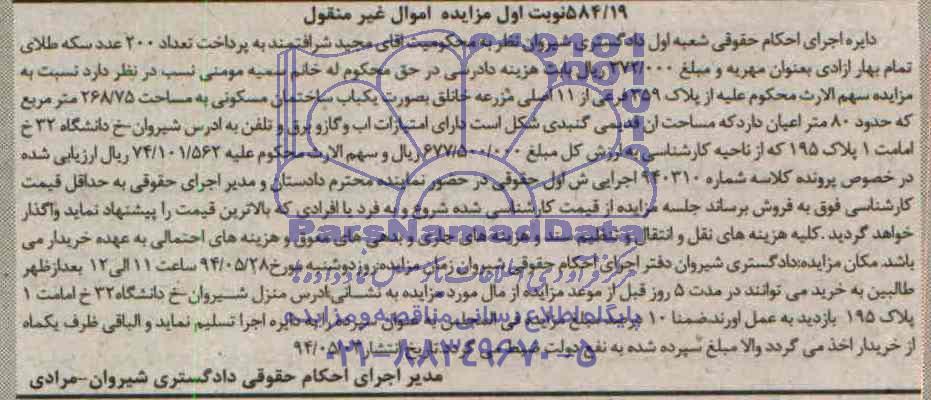 ۵۸۴/۱۹نوبت اول مزایده اموال غیر منقول
دایره اجرای احکام حقوقی شعبه اول دادگستری شیروان نظر به محکومیت آقای مجید شرافتمند به پرداخت تعداد ۲۰۰ عدد سکه طلای
تمام بهار ازادی بعنوان مهریه و مبلغ ۲۷۲/۰۰۰ ریال بابت هزینه دادرسی در حق محکوم له خانم سمیه مومنی نسب در نظر دارد نسبت به
مزایده سهم الارث محکوم علیه از پلاک ۳۵۹ فرعی از ۱۱ اصلی مزرعه خانلق بصورت یکباب ساختمان مسکونی به مساحت ۲۶۸/۷۵ متر مربع
که حدود ۸۰ متر اعیان دارد که مساحت ان قدیمی گنبدی شکل است دارای امتیازات اب وگازو برق و تلفن به ادرس شیروان-خ دانشگاه ۳۲ خ
امامت ۱ پلاک ۱۹۵ که از ناحیه کارشناسی به ارزش کل مبلغ ۶۷۷/۵۰۰/۰۰۰ ریال و سهم الارث محکوم علیه ۷۴/۱۰۱/۵۶۲ ریال ارزیابی شده
در خصوص پرونده کلاسه شماره ۹۴۰۳۱۰ اجرایی ش اول حقوقی در حضور نماینده محترم دادستان و مدیر اجرای حقوقی به حداقل قیمت
کارشناسی فوق به فروش برساند جلسه مزایده از قیمت کارشناسی شده شروع و به فرد یا افرادی که بالاترین قیمت را پیشنهاد نماید واگذار
خواهد گردید .کلیه هزینه های نقل و انتقال و تنظیم سند و هزینه های جاری و بدهی های معوق و هزینه های احتمالی به عهده خریدار می
باشد. مکان مزایده:دادگستری شیروان دفتر اجرای احکام حقوقی شیروان زمان مزایده:روز دوشنبه مورخ ۹۴/۰۵/۲۸ ساعت ۱۱ الی ۱۲ بعدازظهر
طالبین به خرید می توانند در مدت ۵ روز قبل از موعد مزایده از مال مورد مزایده به نشانی:ادرس منزل شیروان -خ دانشگاه ۳۲ خ امامت ۱
پلاک ۱۹۵ بازدید به عمل اورند ضمنا ۱۰ درصد مبلغ مزایده فی المجلس به عنوان سپرده به دایره اجرا تسلیم نماید و الباقی ظرف یکماه
از خریدار اخذ می گردد والا مبلغ سپرده شده به نفع دولت ضبط می گردد تاریخ انتشار ۹۴/۰۵/
مدیر اجرای احکام حقوقی دادگستری شیروان-مرادی
ParsNamadData
پایگاه اطلاع رسانی مناقصه و مزایده
۰۲۱-۸۸۳۴۹۶۷۰-۵